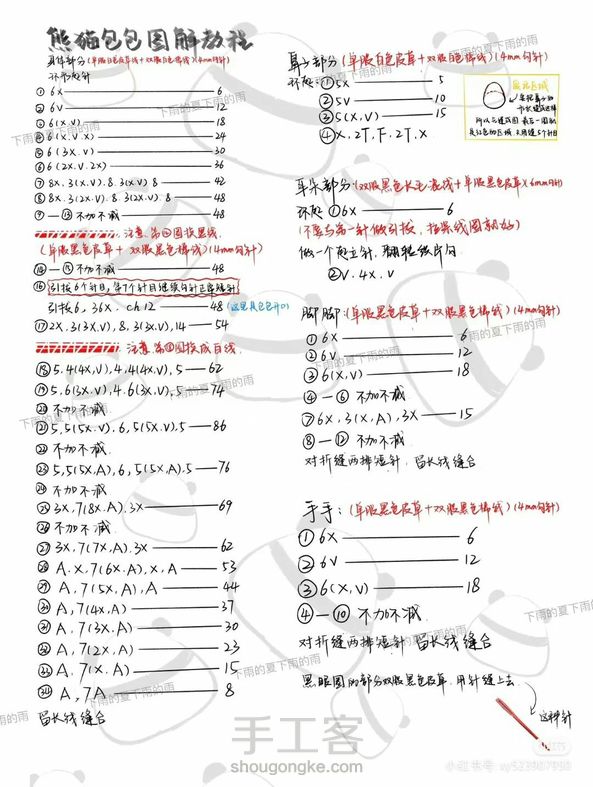 熊猫包包图解教程
身体部分(单股白色皮草线+双股白色棉线)(4mm钩针)
环形起针
① 6X — 6
② 6V — 12
③ 6(X.V) — 18
④ 6(X.V.X) — 24
⑤ 6(3X.V) — 30
⑥ 6(2X.V.2X) — 36
⑦ 8X.3(X.V).8.3(X.V)8 — 42
⑧ 8.3(2X.V).8.3(2X.V) — 48
⑨ — ⑬ 不加不减 — 48
注意.第⑭圈换黑线.
(单股黑色皮草+双股黑色棉线)(4mm钩针)
⑭ — ⑮ 不加不减 — 48
⑯ 引拔6个针目,第7个针目继续钩针正常短针
引拔6, 36X. ch12 — 48 (这里是包包开口)
⑰ 2X.3(3X.V),8.3(3X.V),14 — 54
注意.第⑱圈换成白线.
⑱ 5.4(4X,V),4.4(4X.V),5 — 62
⑲ 5.6(3X.V).4.6(3X.V).5 — 74
⑳ 不加不减
㉑ 5,5(5X.V).6,5(5X.V).5 — 86
㉒ 不加不减.
㉓ 5,5(5X,A),6,5(5X,A).5 — 76
㉔ 不加不减
㉕ 3X,7(8X.A).3X — 69
㉖ 不加不减.
㉗ 3X,7(7X,A).3X — 62
㉘ A.X,7(6X.A),X,A — 53
㉙ A,7(5X,A),A — 44
㉚ A,7(4X,A) — 37
㉛ A,7(3X.A) — 30
㉜ A,7(2X.A) — 23
㉝ A,7(X.A) — 15
㉞ A,7A — 8
留长线缝合
(单股白色皮草+双股白色棉线)(4mm钩针)
环起:①5X — 5
②5V — 10
③5(X,V) — 15
④X.2T,F.2T.X
耳朵部分(双股黑色长毛混线+单股黑色皮草)(6mm钩针)
环起 ①6X — 6
(不要与第一针做引拔,
②V.4X.V
脚脚:(单股黑色皮草+双股黑色棉线)(4mm钩针)
①6X — 6
②6V — 12
③6(X,V) — 18
④ — ⑥ 不加不减
⑦6X,3(X,A),3X — 15
⑧ — ⑫ 不加不减
对折缝两排短针,留长线缝合
手手:(单股黑色皮草+双股黑色棉线)(4mm钩针)
①6X — 6
②6V — 12
③6(X,V) — 18
④ — ⑩ 不加不减
对折缝两排短针 留长线缝合
黑眼圈的部分双股黑色皮草.用针缝上去.
这种针
下雨的夏下雨的雨
手工客
shougongke.com